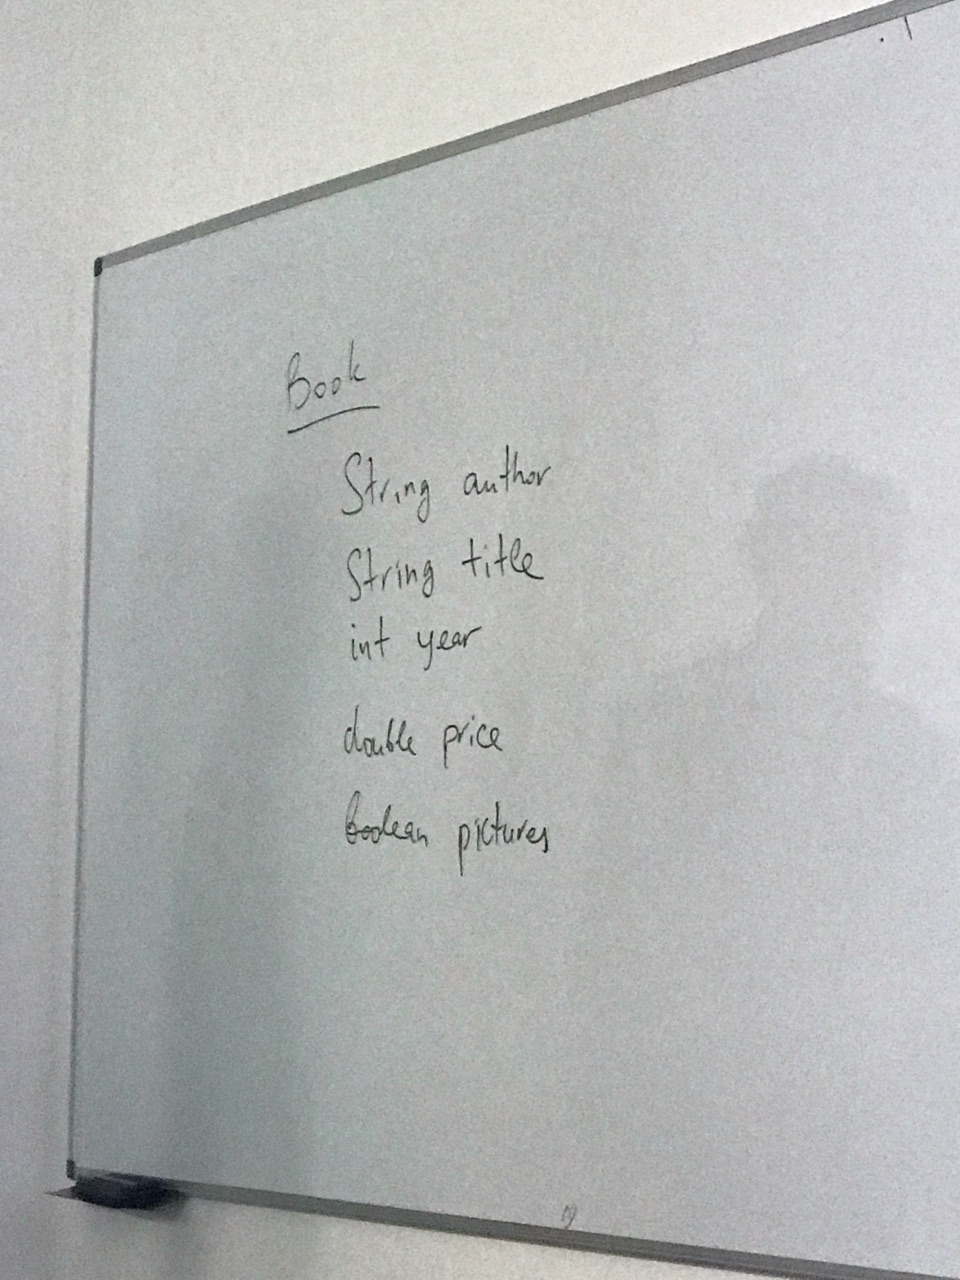 Book
String author
String title
int year
double price
boolean pictures